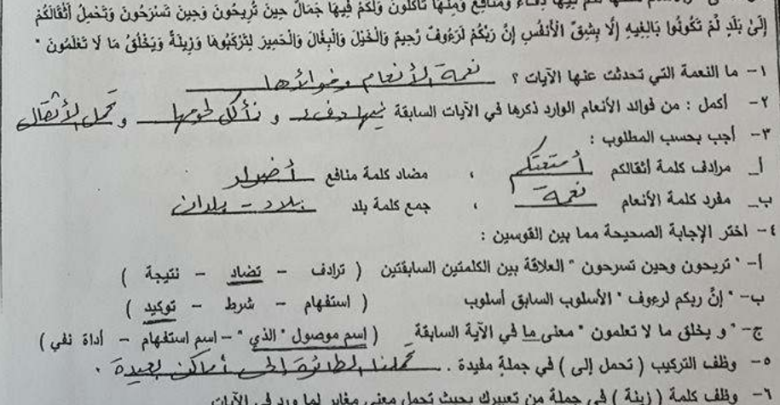 فيها دفء ومنافع ومنها تأكلون ولكم فيها جمال حين تريحون وحين تسرحون وتحمل أثقالكم
إلى بلد لم تكونوا بالغيه إلا بشق الأنفس إن ربكم لرءوف رحيم والخيل والبغال والحمير لتركبوها وزينة ويخلق ما لا تعلمون "
١- ما النعمة التي تحدثت عنها الآيات ؟ نعمة الأنعام وفوائدها
٢- أكمل : من فوائد الأنعام الوارد ذكرها في الآيات السابقة فيها دفء و نأكل لحومها و تحمل الأثقال
٣- أجب بحسب المطلوب :
أ_ مرادف كلمة أثقالكم أمتعتكم ، مضاد كلمة منافع أضرار
ب_ مفرد كلمة الأنعام نعمة ، جمع كلمة بلد بلاد - بلدان
٤- اختر الإجابة الصحيحة مما بين القوسين :
أ- " تريحون وحين تسرحون " العلاقة بين الكلمتين السابقتين ( ترادف - تضاد - نتيجة )
ب- " إنَّ ربكم لرءوف " الأسلوب السابق أسلوب ( استفهام - شرط - توكيد )
ج- " و يخلق ما لا تعلمون " معنى ما في الآية السابقة ( اسم موصول " الذي " - اسم استفهام - أداة نفي )
٥- وظف التركيب ( تحمل إلى ) في جملة مفيدة . تحملنا الطائرة إلى أماكن بعيدة .
٦- وظف كلمة ( زينة ) في جملة من تعبيرك بحيث تحمل معنى مغاير لما ورد في الآيات